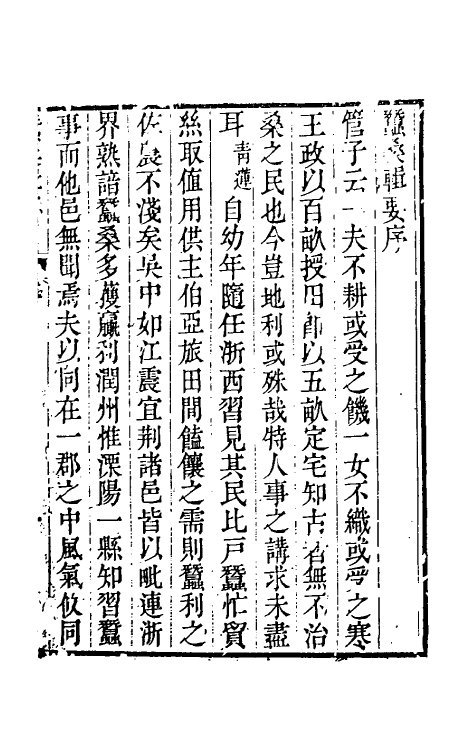 蠶桑輯要序
管子云一夫不耕或受之饑一女不織或受之寒
王政以百畝授田卽以五畝定宅知古者無不治
桑之民也今豈地利或殊哉特人事之講求未盡
耳青蓮自幼年隨任浙西習見其民比戶蠶忙貿
絲取值用供主伯亞旅田間饁饟之需則蠶利之
佐農不淺矣吳中如江震宜荆諸邑皆以毗連浙
界熟諳蠶桑多獲贏利潤州惟溧陽一縣知習蠶
事而他邑無聞焉夫以同在一郡之中風氣攸同